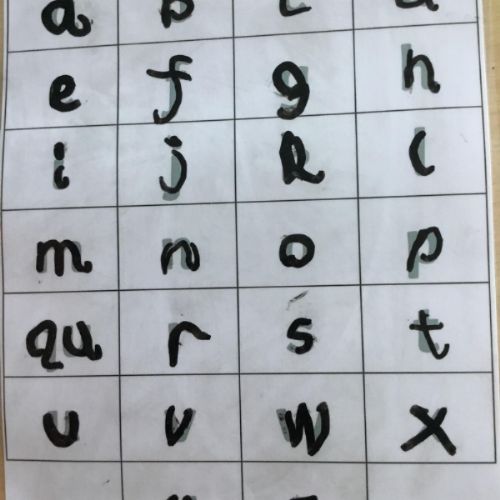 a b c d
e f g h
i j k l
m n o p
qu r s t
u v w x